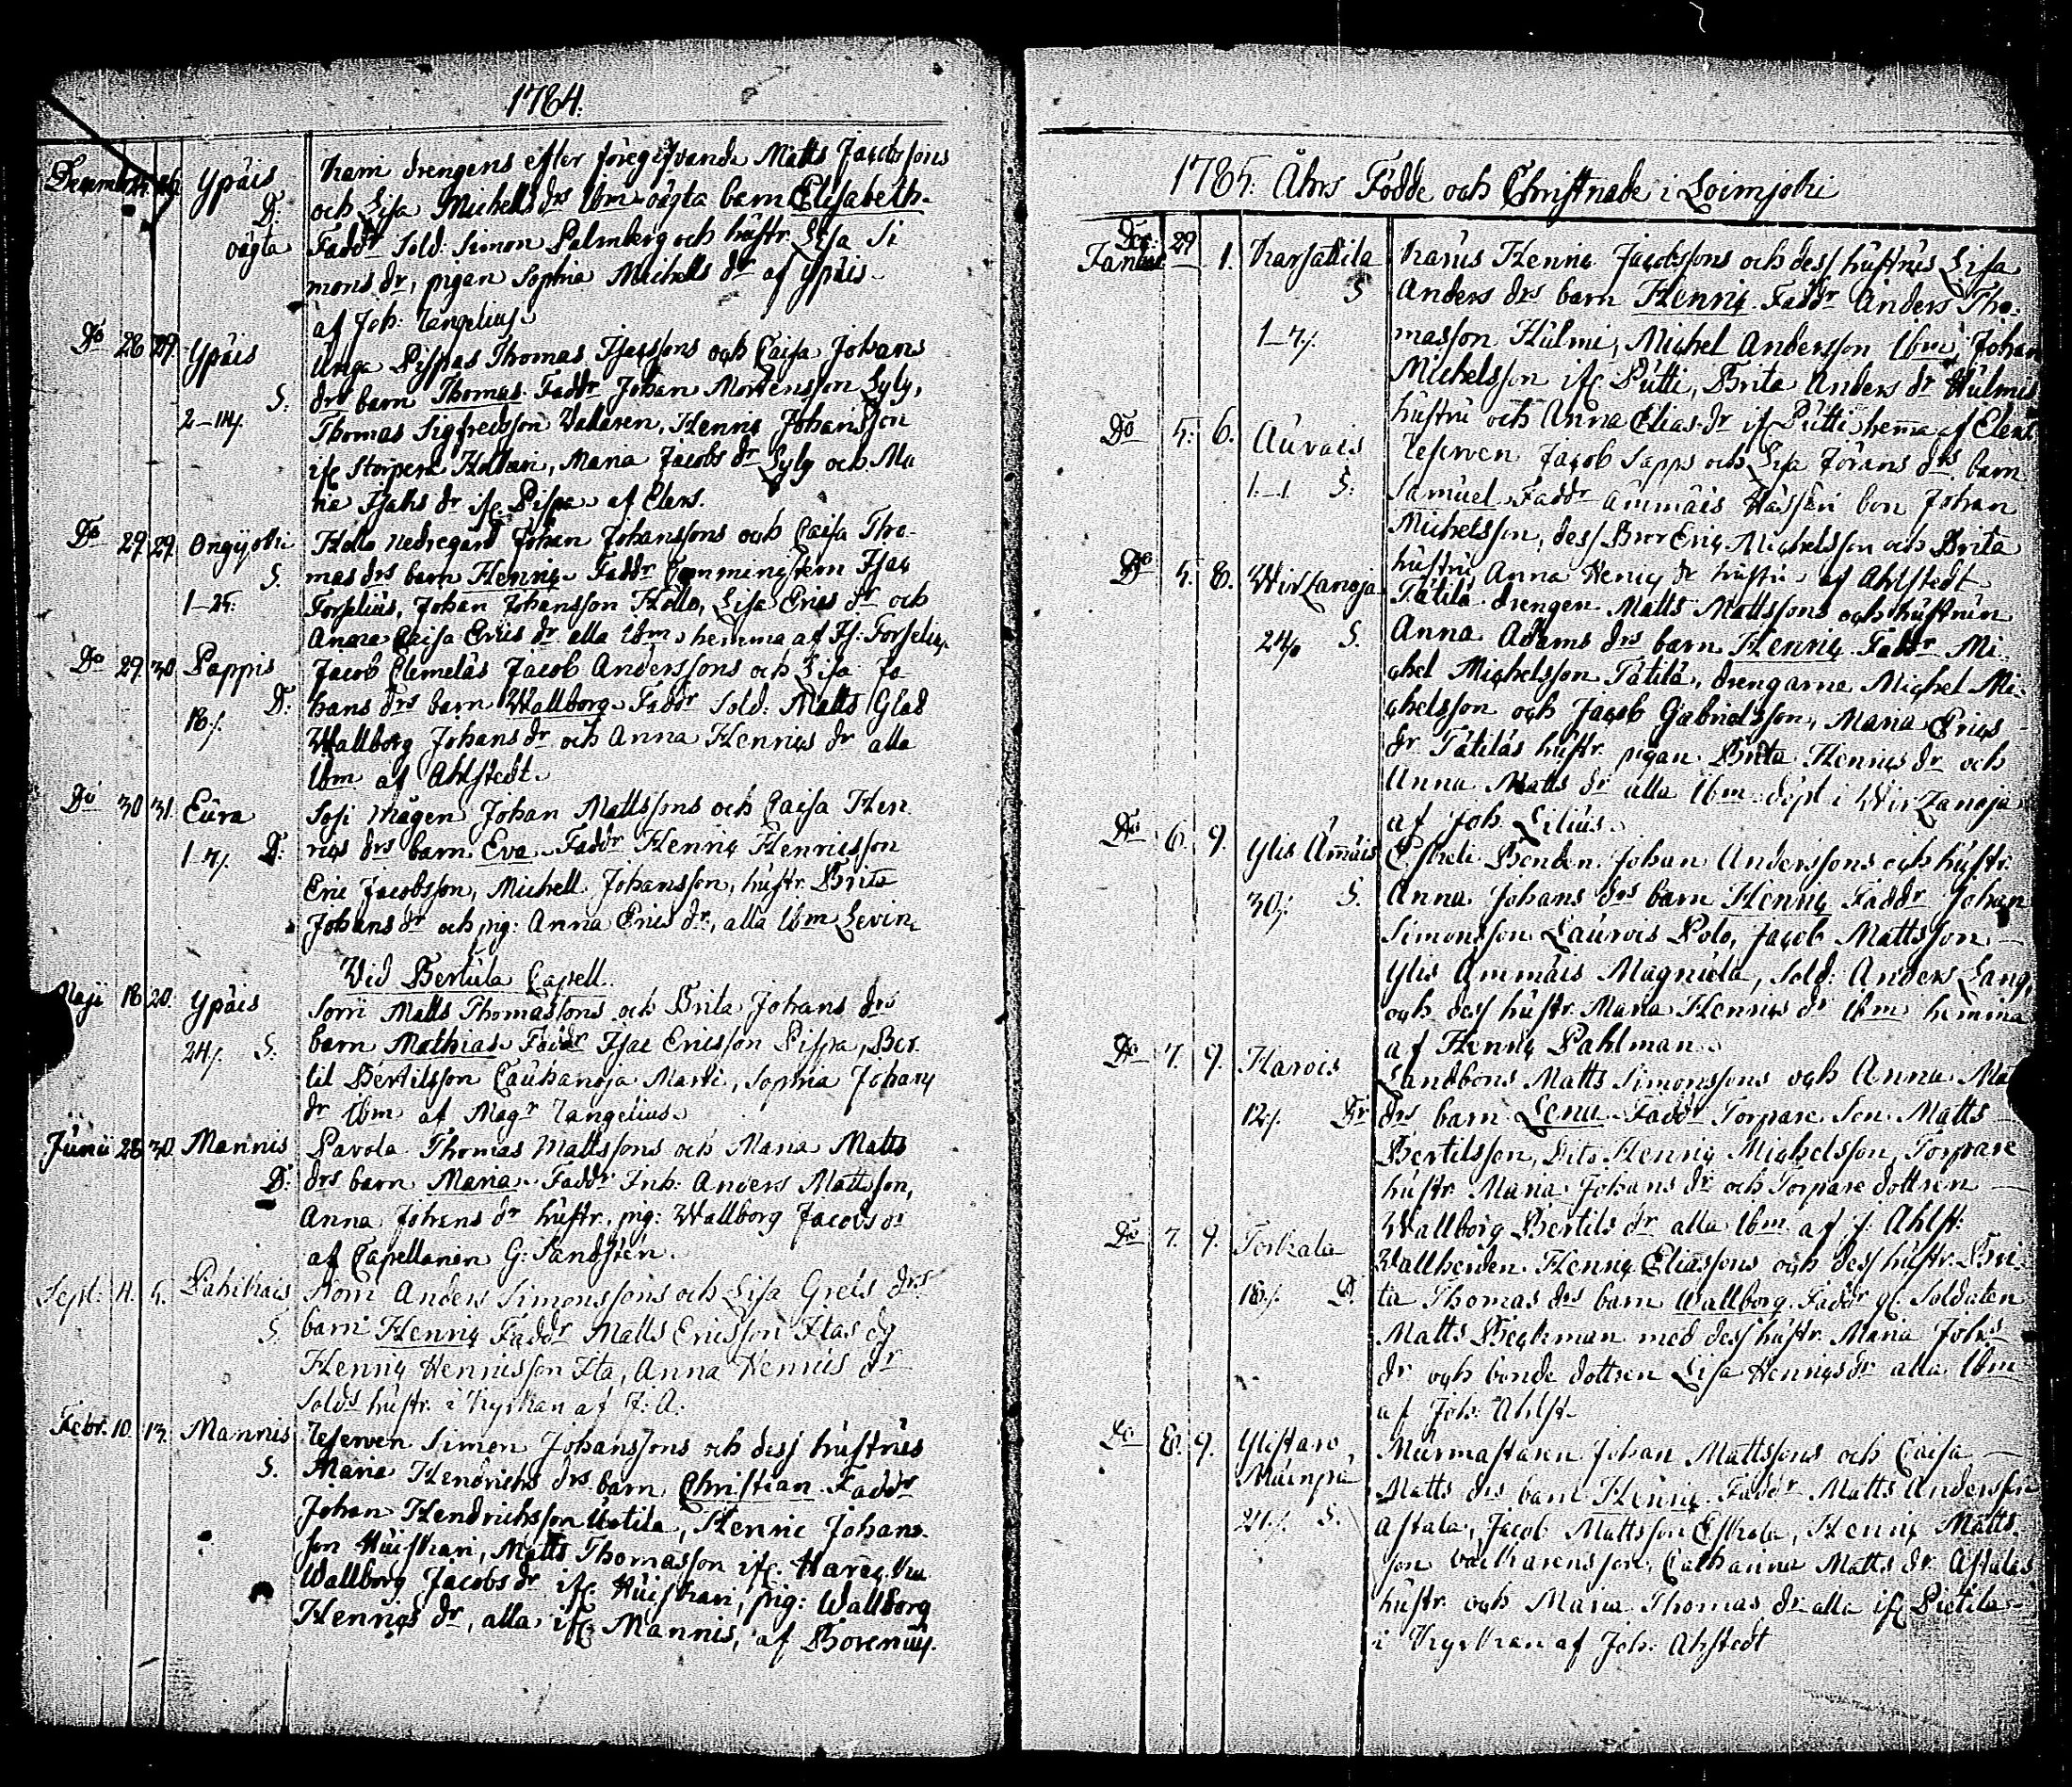 1784.
Ypäis Kari drengens efter föregifvande Matts Jacobssons
D: och Lisa Michells drs Ibm oägta barn Elisabeth.
oägta Faddr Sold. Simon Palmberg och hustr. Lisa Si
mons dr, pigan Sophia Michells dr af Ypäis
af Joh: Tangelius.
Do 28 29. Ypäis Unga Pispas Thomas Isacssons och Caisa Johans
S. drs barn Thomas. Faddr Johan Mortensson Syly,
Thomas Sigfredsson, Henric Johansson
Maria Jacobs dr Syly och Ma
ria Isaks dr ifr. Pispa af Elers.
Do 29 29. Ongijoki Kollo nedregård Johan Johanssons och Caisa Tho
S. mas drs barn Henric Faddr Isac
1-25. Forselius, Johan Johansson Kollo, Lisa Erics dr och
Anna Caisa Erics dr alla Ibm hemma af Is: Forselius.
Do 29. 30 Pappis Jacob Clemeläs Jacob Anderssons och Lisa Jo
D: hans drs barn Wallborg Faddr Sold: Matts Glad
18/. Wallborg Johans dr och Anna Henrics dr alla
Ibm af Ahlstedt.
Do 30 31. Eura Sofi mågen Johan Mattssons och Caisa Hen
1-7/. D: rics drs barn Eva. Faddr Henric Henricsson
Eric Jacobsson, Michell Johansson, hustr. Brita
Johans dr och pig: Anna Erics dr, alla Ibm Levin.
Vid Bertula Capell.
Maji 18 20. Ypäis Sorri Matts Thomassons och Brita Johans drs
24/. S. barn Mathias Faddr Isac Ericsson Pispa, Ber
til Bertilsson Cauhanoja Marti, Sophia Johans
dr Ibm af Magr Tangelius.
Junii 28 30. Mannis Pavola Thomas Mattssons och Maria Matts
D: drs barn Maria. Faddr Inh: Anders Mattsson,
Anna Johans dr hustr., pig: Wallborg Jacobs dr
af Capellanen G: Sandsten.
Sept: 4. 5. Anders Simonssons och Lisa Grels drs
S. barn Henric Faddr Matts Ericsson
Henric Henricsson Anna Henrics dr
Solds hustr. i Kyrkan af J: A.
Febr. 10. 13. Mannis Reserven Simon Johanssons och dess hustrus
S. Maria Hendrichs drs barn Christian Faddr
Johan Hendrichsson Uotila, Henric Johans
son Huiskari, Matts Thomasson ifr.
Wallborg Jacobs dr ifr. Huiskari, pig: Wallborg
Henrics dr, alla ifr Mannis, af Borenius.
1785. Åhrs Födde och Christnade i Loimjoki
Dec: 29
Januar 1. Karsattila Karus Henric Jacobssons och dess hustrus Lisa
S Anders drs barn Henric. Faddr Anders Tho
1-7/. masson Hulmi, Michel Andersson Ibm, Johan
Michelsson ifr Putti, Brita Anders dr Hulmis
hustru och Anna Elias dr ifr Putti hema af Elers
Do 5: 6. Auvais Reserven Jacob Sapps och Lisa Jörans drs barn
1.-1. S: Samuel. Faddr Ammäis Johan
Michelsson, dess Bror Eric Michelsson och Brita
hustru Anna Henics dr hustru af Ahlstedt
Do 5. 8. Wirtzanoja Tätilä drengen Matts Mattssons och hustrun
24/. S. Anna Adams drs barn Henric Faddr Mi
chel Michelsson Tätilä, drengarne Michel Mi
chelsson och Jacob Gabrielsson, Maria Erics
dr Tätiläs hustr. pigan Brita Henrics dr och
Anna Matts dr alla Ibm döpt i Wirtzanoja
af Joh. Lilius.
Do 6. 9. Ylis Åmäis Eskeli Bonden Johan Anderssons och hustr.
30/. S. Anna Johans drs barn Henric Faddr Johan
Simonsson Laurois Polo, Jacob Mattsson
Ylis Ammäis Magnula, Sold: Anders Lang,
och dess hustr. Maria Henrics dr Ibm hemma
af Henric Pahlman.
Do 7. 9. Harois Landbons Matts Simonssons och Anna Mat
12/. Dr drs barn Lena. Faddr Torpare Son Matts
Bertilsson, Dito Henric Michelsson, Torpare
hustr. Maria Johans dr och Torpare dottren
Wallborg Bertils dr alla Ibm af J. Ahlst:
Do 7. 9. Torkala Wallheiden Henric Eliassons och dess hustr. Bri
18/. D. ta Thomas drs barn Wallborg. Faddr gl Soldaten
Matts Bieckman med dess hustr. Maria Johs
dr och bonde dottren Lisa Henrics dr alla Ibm
af Joh: Ahlst.
Do 8. 9. Ylistaro Murmästaren Johan Mattssons och Caisa
Mäenpä Matts drs barn Henric. Faddr Matts Andersson
24/. S. Astala, Jacob Mattsson Eskola, Henric Matts
son Catharina Matts dr Astalas
hustr. och Maria Thomas dr alla ifr Pietilä
i Kyrkan af Joh: Ahlstedt